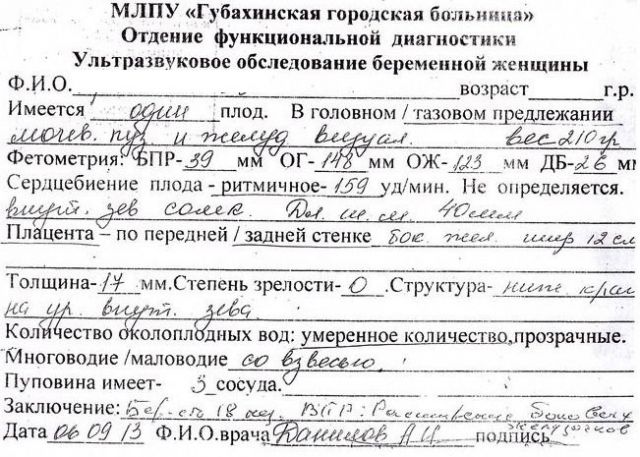 МЛПУ «Губахинская городская больница»
Отдение функциональной диагностики
Ультразвуковое обследование беременной женщины
Ф.И.О. возраст г.р.
Имеется один плод. В головном / тазовом предлежании
мочев. пуз. и желуд визуал. вес 210 гр
Фетометрия: БПР-39 мм ОГ-148 мм ОЖ-123 мм ДБ-26 мм
Сердцебиение плода - ритмичное- 159 уд/мин. Не определяется.
внутр. зев сомк. Дл. ш. м. 40мм
Плацента – по передней / задней стенке бок. шир 12 см
Толщина-17 мм.Степень зрелости- 0 .Структура- ниж. край
на ур. внутр. зева.
Количество околоплодных вод: умеренное количество,прозрачные.
Многоводие /маловодие со взвесью.
Пуповина имеет- 3 сосуда.
Заключение: Бер-сть 18 нед. ВПР: Расширение боковых
желудочков
Дата 06 09 13 Ф.И.О.врача Данилов А подпись